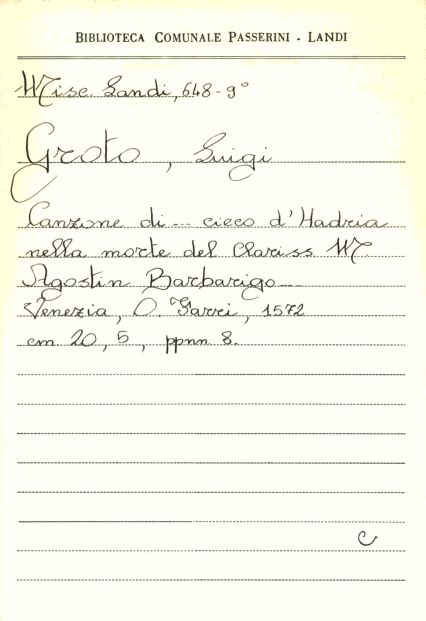 BIBLIOTECA COMUNALE PASSERINI - LANDI
Misc. Landi, 648-9°
Groto, Luigi
Canzone di... cieco d'Hadria
nella morte del Clariss M.
Agostin Barbarigo...
Venezia, O. Farri, 1572
cm 20,5, ppnn 8.
C